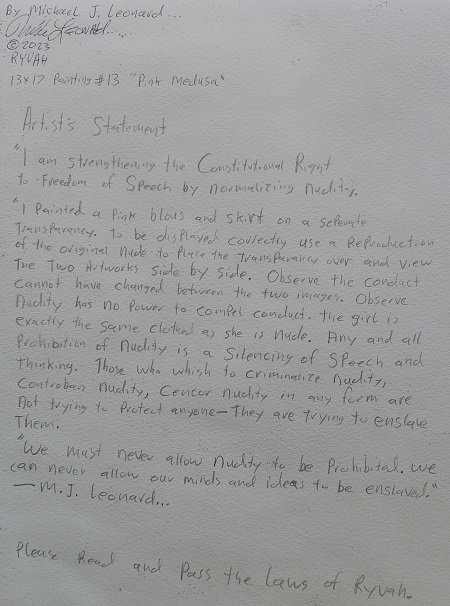 By Michael J. Leonard...
Mike Leonard.....
©2023
RYVAH
13x17 Painting #13 "Pink Medusa"
Artist's Statement
"I am strengthening the Constitutional Right
to Freedom of Speech by normalizing Nudity.
"I Painted a Pink blous and skirt on a seperate
Transparancy. To be displayed correctly use a Reproduction
of the original Nude to Place the Transparancy over and view
The Two Artworks side by side. Observe the conduct
cannot have changed between the two images. Observe
Nudity has no power to compel conduct. the girl is
exactly the same clothed as she is nude. Any and all
Prohibition of Nudity is a Silencing of Speech and
Thinking. Those who whish to criminalize Nudity,
Controban Nudity, Cencor Nudity in any form are
Not trying to Protect anyone—They are trying to enslave
Them.
"We must never allow Nudity to be Prohibited. We
can never allow our minds and ideas to be enslaved."
—M.J. Leonard...
Please Read and Pass the Laws of Ryvah.